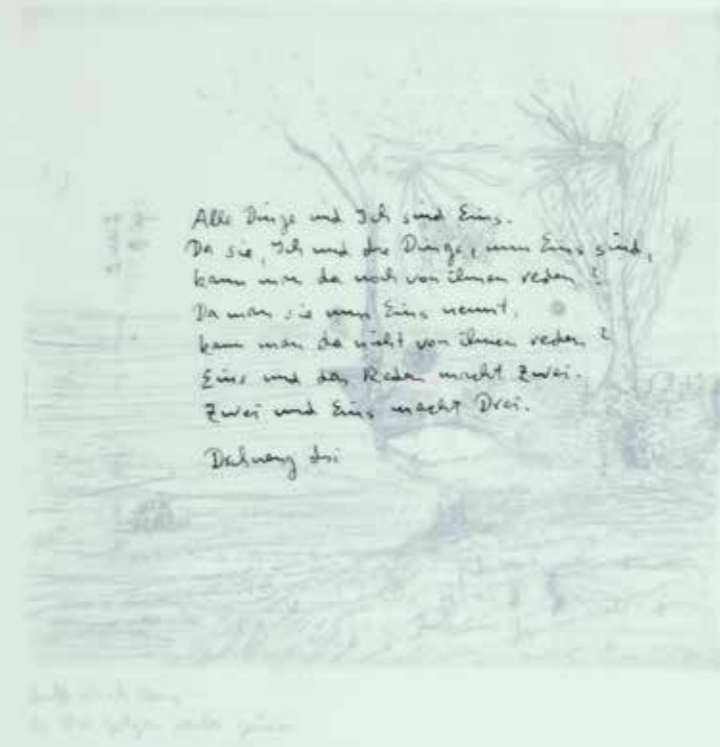 Alle Dinge und Ich sind Eins.
Da sie, Ich und die Dinge, nun Eins sind,
kann man da noch von ihnen reden?
Da man sie nun Eins nennt,
kann man da nicht von ihnen reden?
Eins und das Reden macht Zwei.
Zwei und Eins macht Drei.